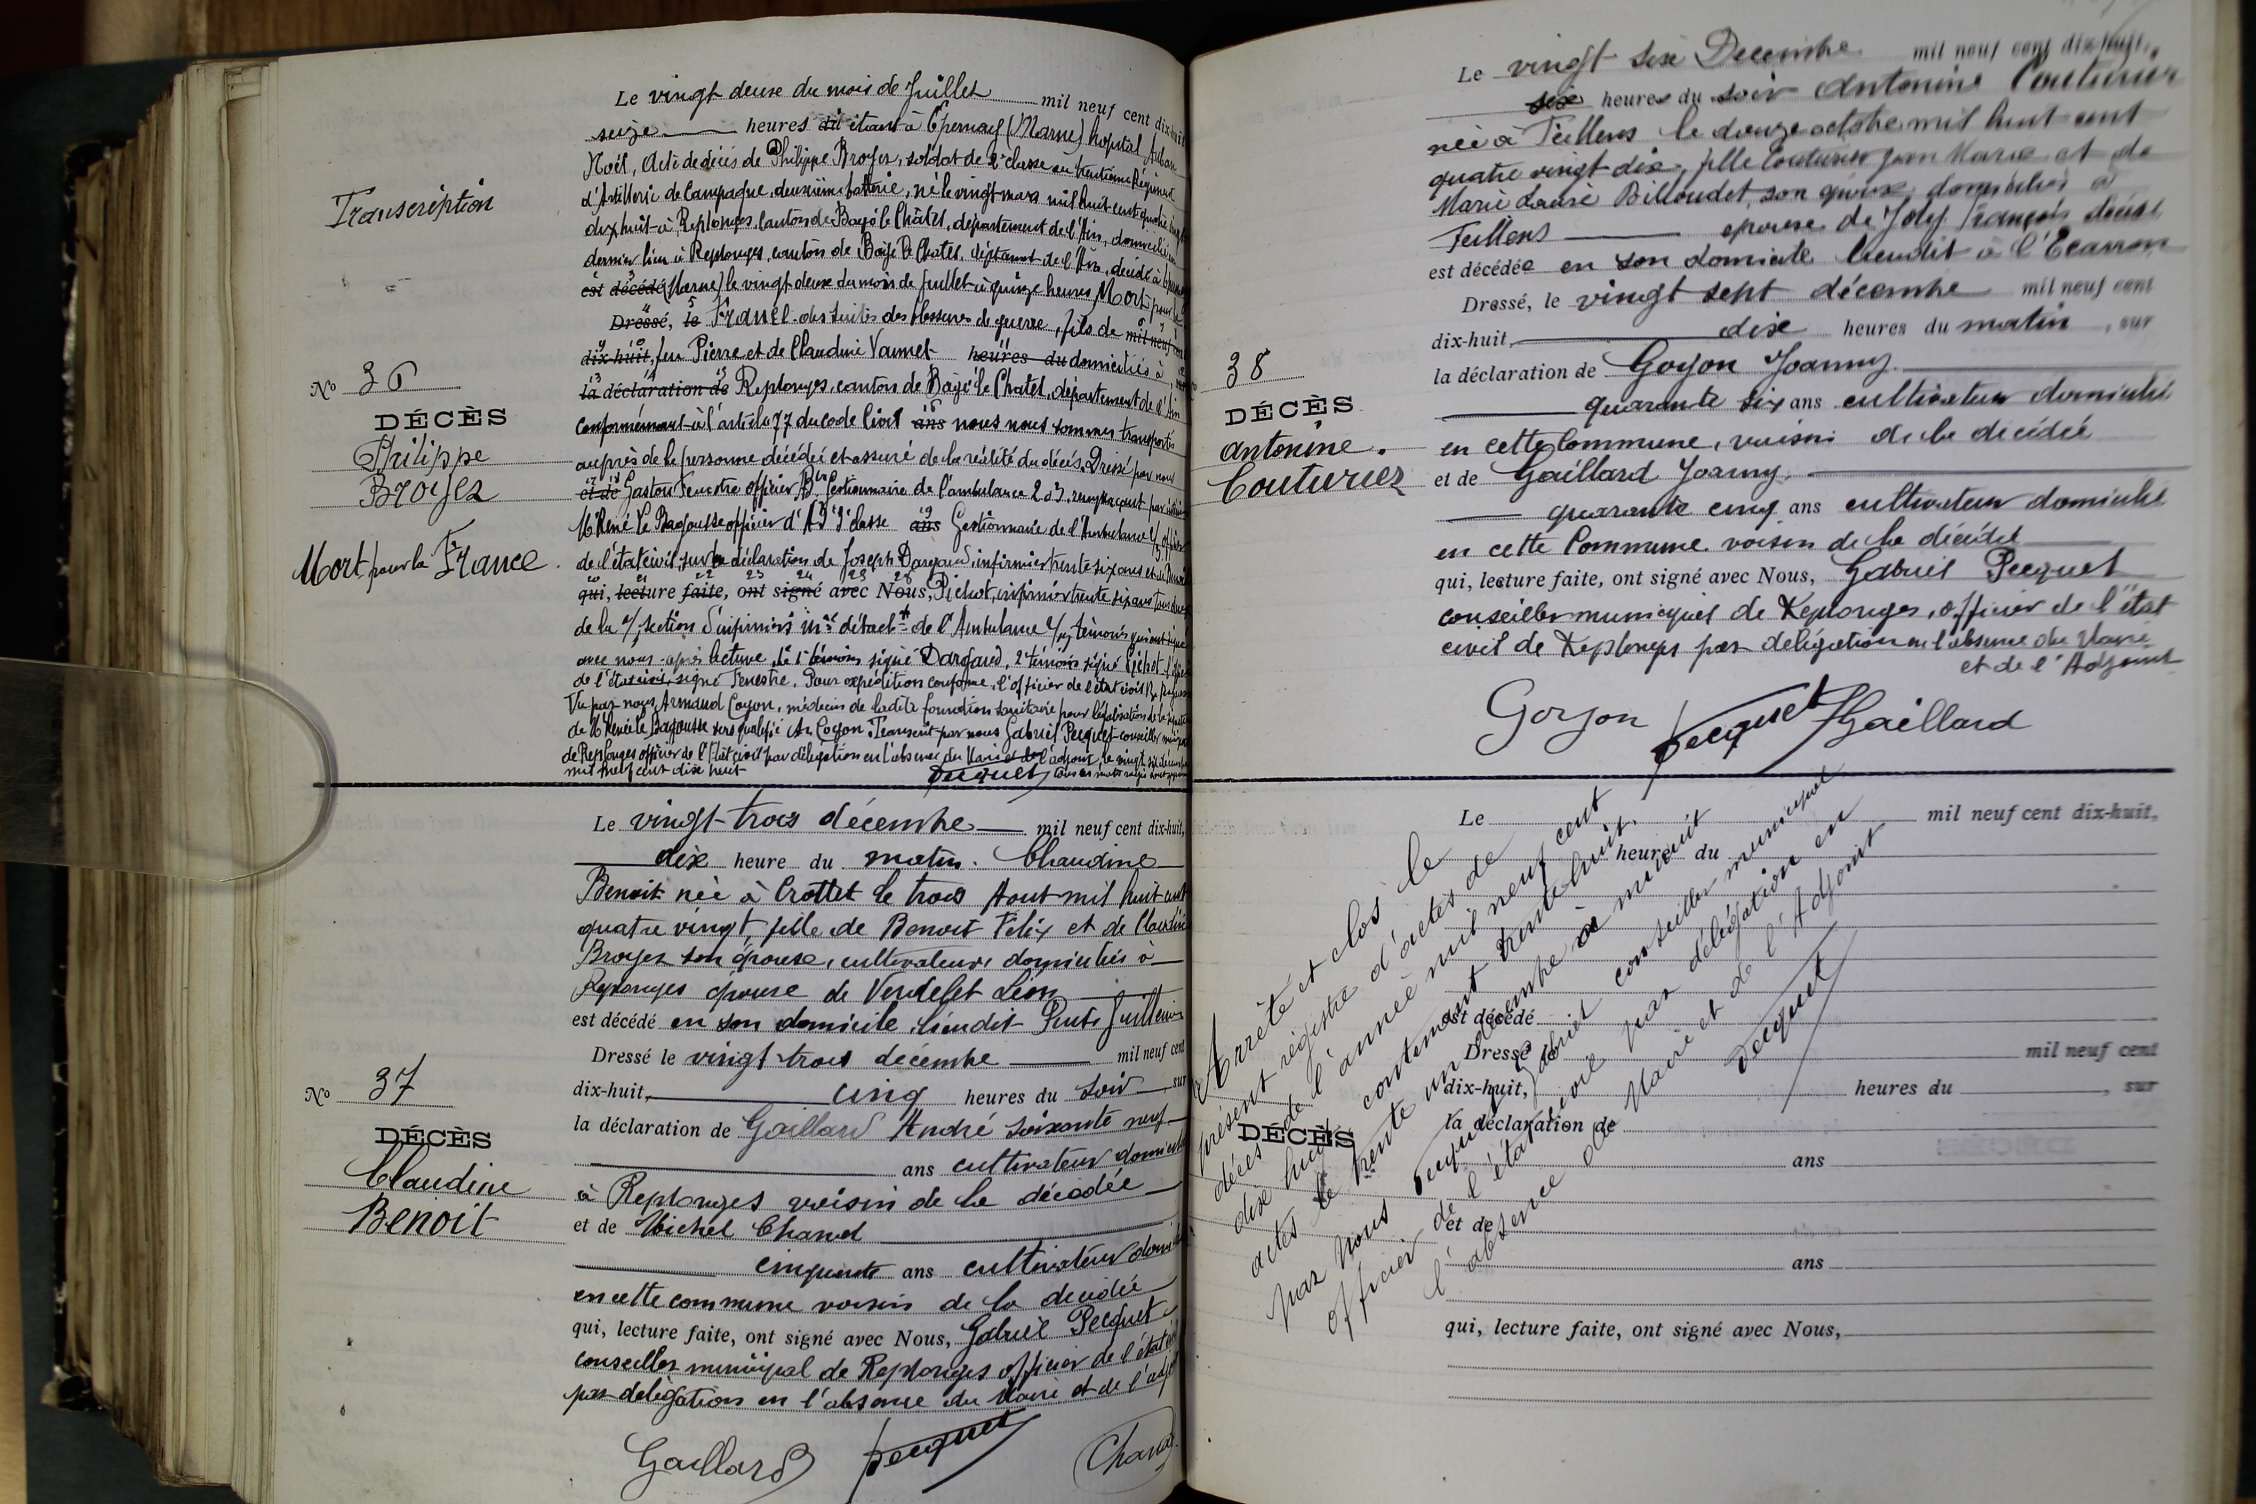 Transcription
No 36
DÉCÈS
Philippe
Broyer
Mort pour la France.
Le vingt deux du mois de Juillet mil neuf cent dix-huit
seize heures du étant à Épernay (Marne) hopital Auban
Moët, Acte de décès de Philippe Broyer, soldat de 2e classe au trentième Régiment
d'Artillerie de Campagne, deuxième batterie, né le vingt mars mil huit cent quatre vingt
dix huit à Replonges, canton de Bagé le Châtel, département de l'Ain, domicilié en
dernier lieu à Replonges, canton de Bagé le Chatel, départment de l'Ain, décédé à Epernay
est décédé (Marne) le vingt deux du mois de Juillet à quinze heures, Mort pour la
Dressé, le France des suites des blessures de guerre, fils de mil neuf cent
dix-huit, feu Pierre et de Claudine Vannet heures du domiciliés à
la déclaration de Replonges, canton de Bagé le Chatel, département de l'Ain
conformément à l'article 77 du code Civil ans nous nous sommes transporté
auprès de la personne décédée et assuré de la réalité du décès, Dressé par nous
et de Gaston Fenestre officier Gestionnaire de l'ambulance 203, remplaçant
Mr René Le Bagousse officier d'A classe ans Gestionnaire de l'Ambulance officier
de l'état civil, sur la déclaration de Joseph Dargaud, infirmier trente six ans et de
qui, lecture faite, ont signé avec Nous, Pichot, infirmier trente six ans tous deux
de la section d'infirmiers détachée de l'Ambulance témoins qui ont signé
avec nous après lecture, le 1er témoin signé Dargaud, 2e témoin signé Pichot
de l'état civil, signé Fenestre. Pour expédition conforme, l'officier de l'état civil Le Bagousse
Vu par nous Armand Coyon, médecin de ladite formation sanitaire pour légalisation de la signature
de Mr René le Bagousse sera qualifié Ar Coyon. Transcrit par nous Gabriel Pecquet conseiller municipal
de Replonges officier de l'État civil par délégation en l'absence du Maire et de l'adjoint, le vingt six décembre
mil neuf cent dix huit Pecquet
No 37
DÉCÈS
Claudine
Benoit
Le vingt-trois décembre mil neuf cent dix-huit,
dix heure du matin. Claudine
Benoit née à Crottet le trois Aout mil huit cent
quatre vingt, fille de Benoit Félix et de Claudine
Broyer son épouse, cultivateurs domiciliés à
Replonges épouse de Verdelet Léon
est décédé en son domicile, lieudit Puits Guillemin
Dressé le vingt-trois décembre mil neuf cent
dix-huit, cinq heures du soir, sur
la déclaration de Gaillard André soixante neuf
ans cultivateur domicilié
à Replonges voisin de la décédée
et de Michel Chanel
cinquante ans cultivateur domicilié
en cette commune voisin de la décédée
qui, lecture faite, ont signé avec Nous, Gabriel Pecquet
conseiller municipal de Replonges officier de l'état civil
par délégation en l'absence du Maire et de l'adjoint
Gaillard Pecquet Chanel
38
DÉCÈS
Antonine.
Couturier
Le vingt six Decembre mil neuf cent dix-huit,
six heures du soir Antonine Couturier
née à Feillens le douze octobre mil huit cent
quatre vingt dix, fille Couturier Jean Marie et de
Marie Louise Billoudet, son épouse domiciliés à
Feillens epouse de Joly François
est décédée en son domicile lieudit à l'Ecarron
Dressé, le vingt sept décembre mil neuf cent
dix-huit, dix heures du matin, sur
la déclaration de Goyon Joanny
quarante six ans cultivateur domicilié
en cette Commune, voisin de la décédée
et de Gaillard Joanny.
quarante cinq ans cultivateur domicilié
en cette Commune. voisin de la décédée
qui, lecture faite, ont signé avec Nous, Gabriel Pecquet
conseiller municipal de Replonges, officier de l'état
civil de Replonges par délégation en l'absence du Maire
et de l'Adjoint
Goyon Pecquet Gaillard
Le mil neuf cent dix-huit,
heure du
est décédé
Dressé le mil neuf cent
dix-huit, heures du , sur
DÉCÈS
la déclaration de
ans
et de
ans
qui, lecture faite, ont signé avec Nous,
Arrêté et clos le
présent régistre d'actes de
décès de l'année mil neuf cent
dix huit contenant trente huit
actes le trente un décembre à minuit
par Nous Pecquet Gabriel conseiller municipal
officier de l'état civil par délégation en
l'absence du Maire et de l'Adjoint
Pecquet